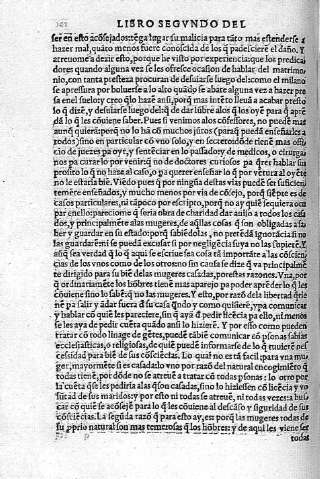 LIBRO SEGVNDO DEL
ser en esto acōsejados tēga lugar su malicia para tāto mas estenderse a
hazer mal, quāto menos fuere conoscida de los q̄ padescierē el daño. Y
atreuome a dezir esto, porque he visto por experiencia que los predica
dores quando alguna vez se les ofresce ocasion de hablar del matrimo
nio, con tanta presteza procuran de desuiarse luego del como el milano
se apressura por boluerse a lo alto quādo se abate alguna vez a hazer pre
sa en el suelo: y creo q̄ lo hazē ansi, porq̄ mas intēto lleuā a acabar presto
lo q̄ dizē, y desuiarse luego del q̄ de dar lūbre a los q̄ los oyē para q̄ aprē
dā lo q̄ les cōuiene saber. Pues si venimos a los cōfessores, no puedē mas
aunq̄ quierā: porq̄ no lo hā cō muchos jūtos (para q̄ pueda enseñarles a
todos) sino en particular cō vno solo, y en secreto: dōde tienē mas offi
cio de juezes pa oyr, y sentēciar en lo passado: y de medicos, o cirurgia
nos pa curar lo por venir: q̄ no de doctores curiosos pa q̄rer hablar sin
proposito lo q̄ no haze al caso, o pa querer enseñar lo q̄ por vētura al oyēte
no le estaria biē. Viēdo pues q̄ por ningūa destas vias puedē ser suficiēte
mēte enseñados, y mucho menos por via de cōsejo, porq̄ siēpre es de
casos particulares, ni tāpoco por escripto, porq̄ no ay quiē se quiera ocu
par en ello: pareciome q̄ seria obra de charidad dar auiso a todos los casa
dos, y principalmente a las mugeres, de aq̄llas cosas q̄ son obligadas a sa
ber y guardar en su estado: porq̄ sabiēdolas, no pretēdā ignorācia si no
las guardarē: ni se pueda escusar si por negligēcia suya no las supiere. Y
ansi q̄ sea verdad q̄ lo q̄ aqui se escriue sea cosa tā importāte a las cōsciēn
cias de los vnos como de los otros: no sin causa se dize q̄ va principalmē
te dirigido para su biē de las mugeres casadas, por estas razones. Vna, por
q̄ ordinariamēte los hōbres tienē mas aparejo pa poder aprēder lo q̄ les
cōuiene sino lo sabē: q̄ no las mugeres. Y esto, por razō de la libertad q̄ tie
nē pa salir y ādar fuera d̄ su casa q̄ndo y como quisierē, y pa comunicar
y hablar cō quiē les pareciere, sin q̄ ayā d̄ pedir licēcia pa ello, ni menos
se les aya de pedir cuēta quādo ansi lo hizierē. Y por esso como pueden
tratar cō todo linage de gētes, puedē tābiē comunicar cō psonas sabias
ecclesiasticas, o religiosas, de quiē puedē informarse de lo q̄ tuuierē ne
cessidad para biē de sus cōsciēcias. Lo qual no es tā facil: para vna mu
ger, mayormēte si es casada: lo vno por razō del natural encogimiēto q̄
todas tienē, por dōde no se atreuē a tratar cō todas psonas: lo otro por
la cuēta q̄ se les pediria a las q̄ son casadas, sino lo hiziessen cō licēcia y vo
lūtad de sus maridos: y por esto ni todas se atreuē, ni todas vezes a bus
car cō quiē se acōsejē para lo q̄ les cōuiene al descāso y siguridad de sus
cōsciēcias. La segūda razō q̄ para esto ay, es: porq̄ las mugeres todas de
su pprio natural son mas temerosas q̄ los hōbres: y de aqui les viene ser
todas